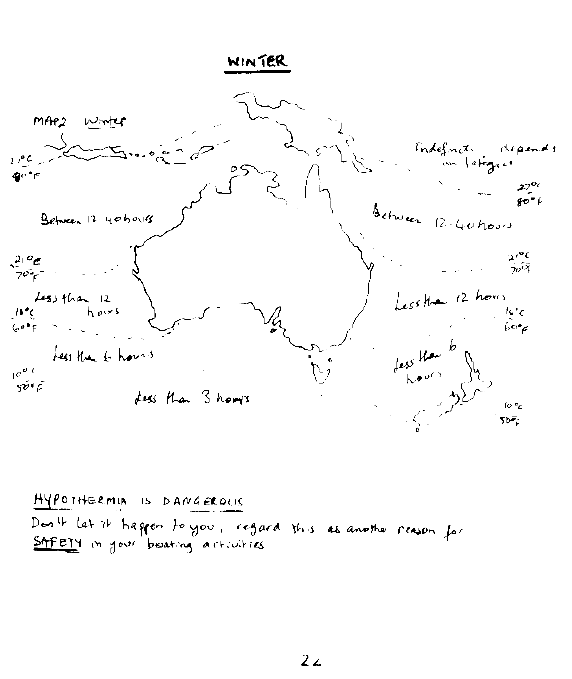 WINTER
MAP2 Winter
Indefinite depends
on fatigue
80°F
27°C
80°F
Between 12 40 hours
Between 12-40 hours
21°C
70°F
21°C
70°F
Less than 12
hours
Less than 12 hours
16°C
60°F
16°C
60°F
Less than 6 hours
Less than 6
hours
10°C
50°F
10°C
50°F
Less than 3 hours
HYPOTHERMIA IS DANGEROUS
Don't let it happen to you, regard this as another reason for
SAFETY in your boating activities
22